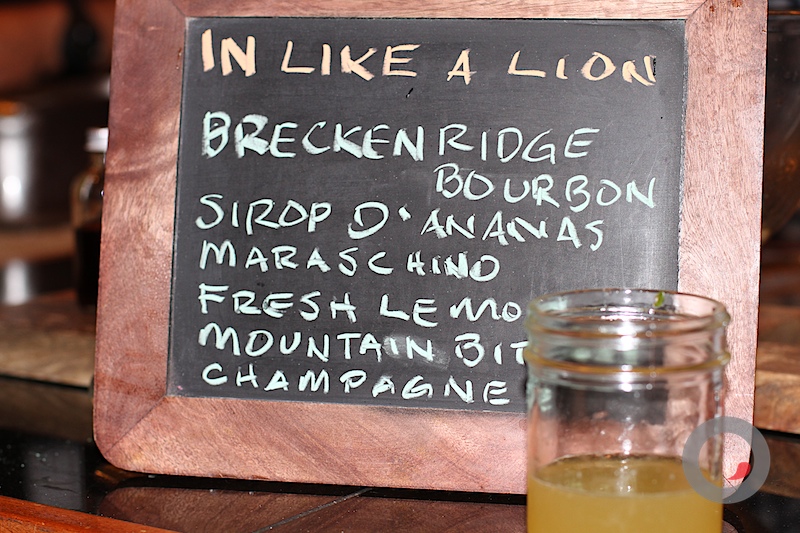 IN LIKE A LION
BRECKENRIDGE
BOURBON
SIROP D'ANANAS
MARASCHINO
FRESH LEMO
MOUNTAIN BIT
CHAMPAGNE